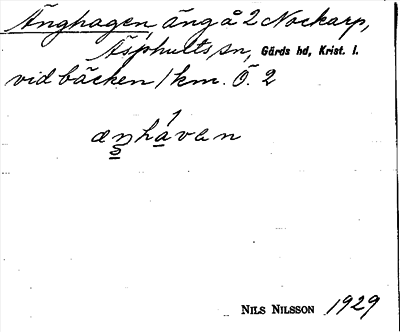 Änghagen, äng å 2 Nockarp,
Äsphults sn, Gärds hd, Krist. l.
vid bäcken 1 km. Ö. 2
NILS NILSSON 1929